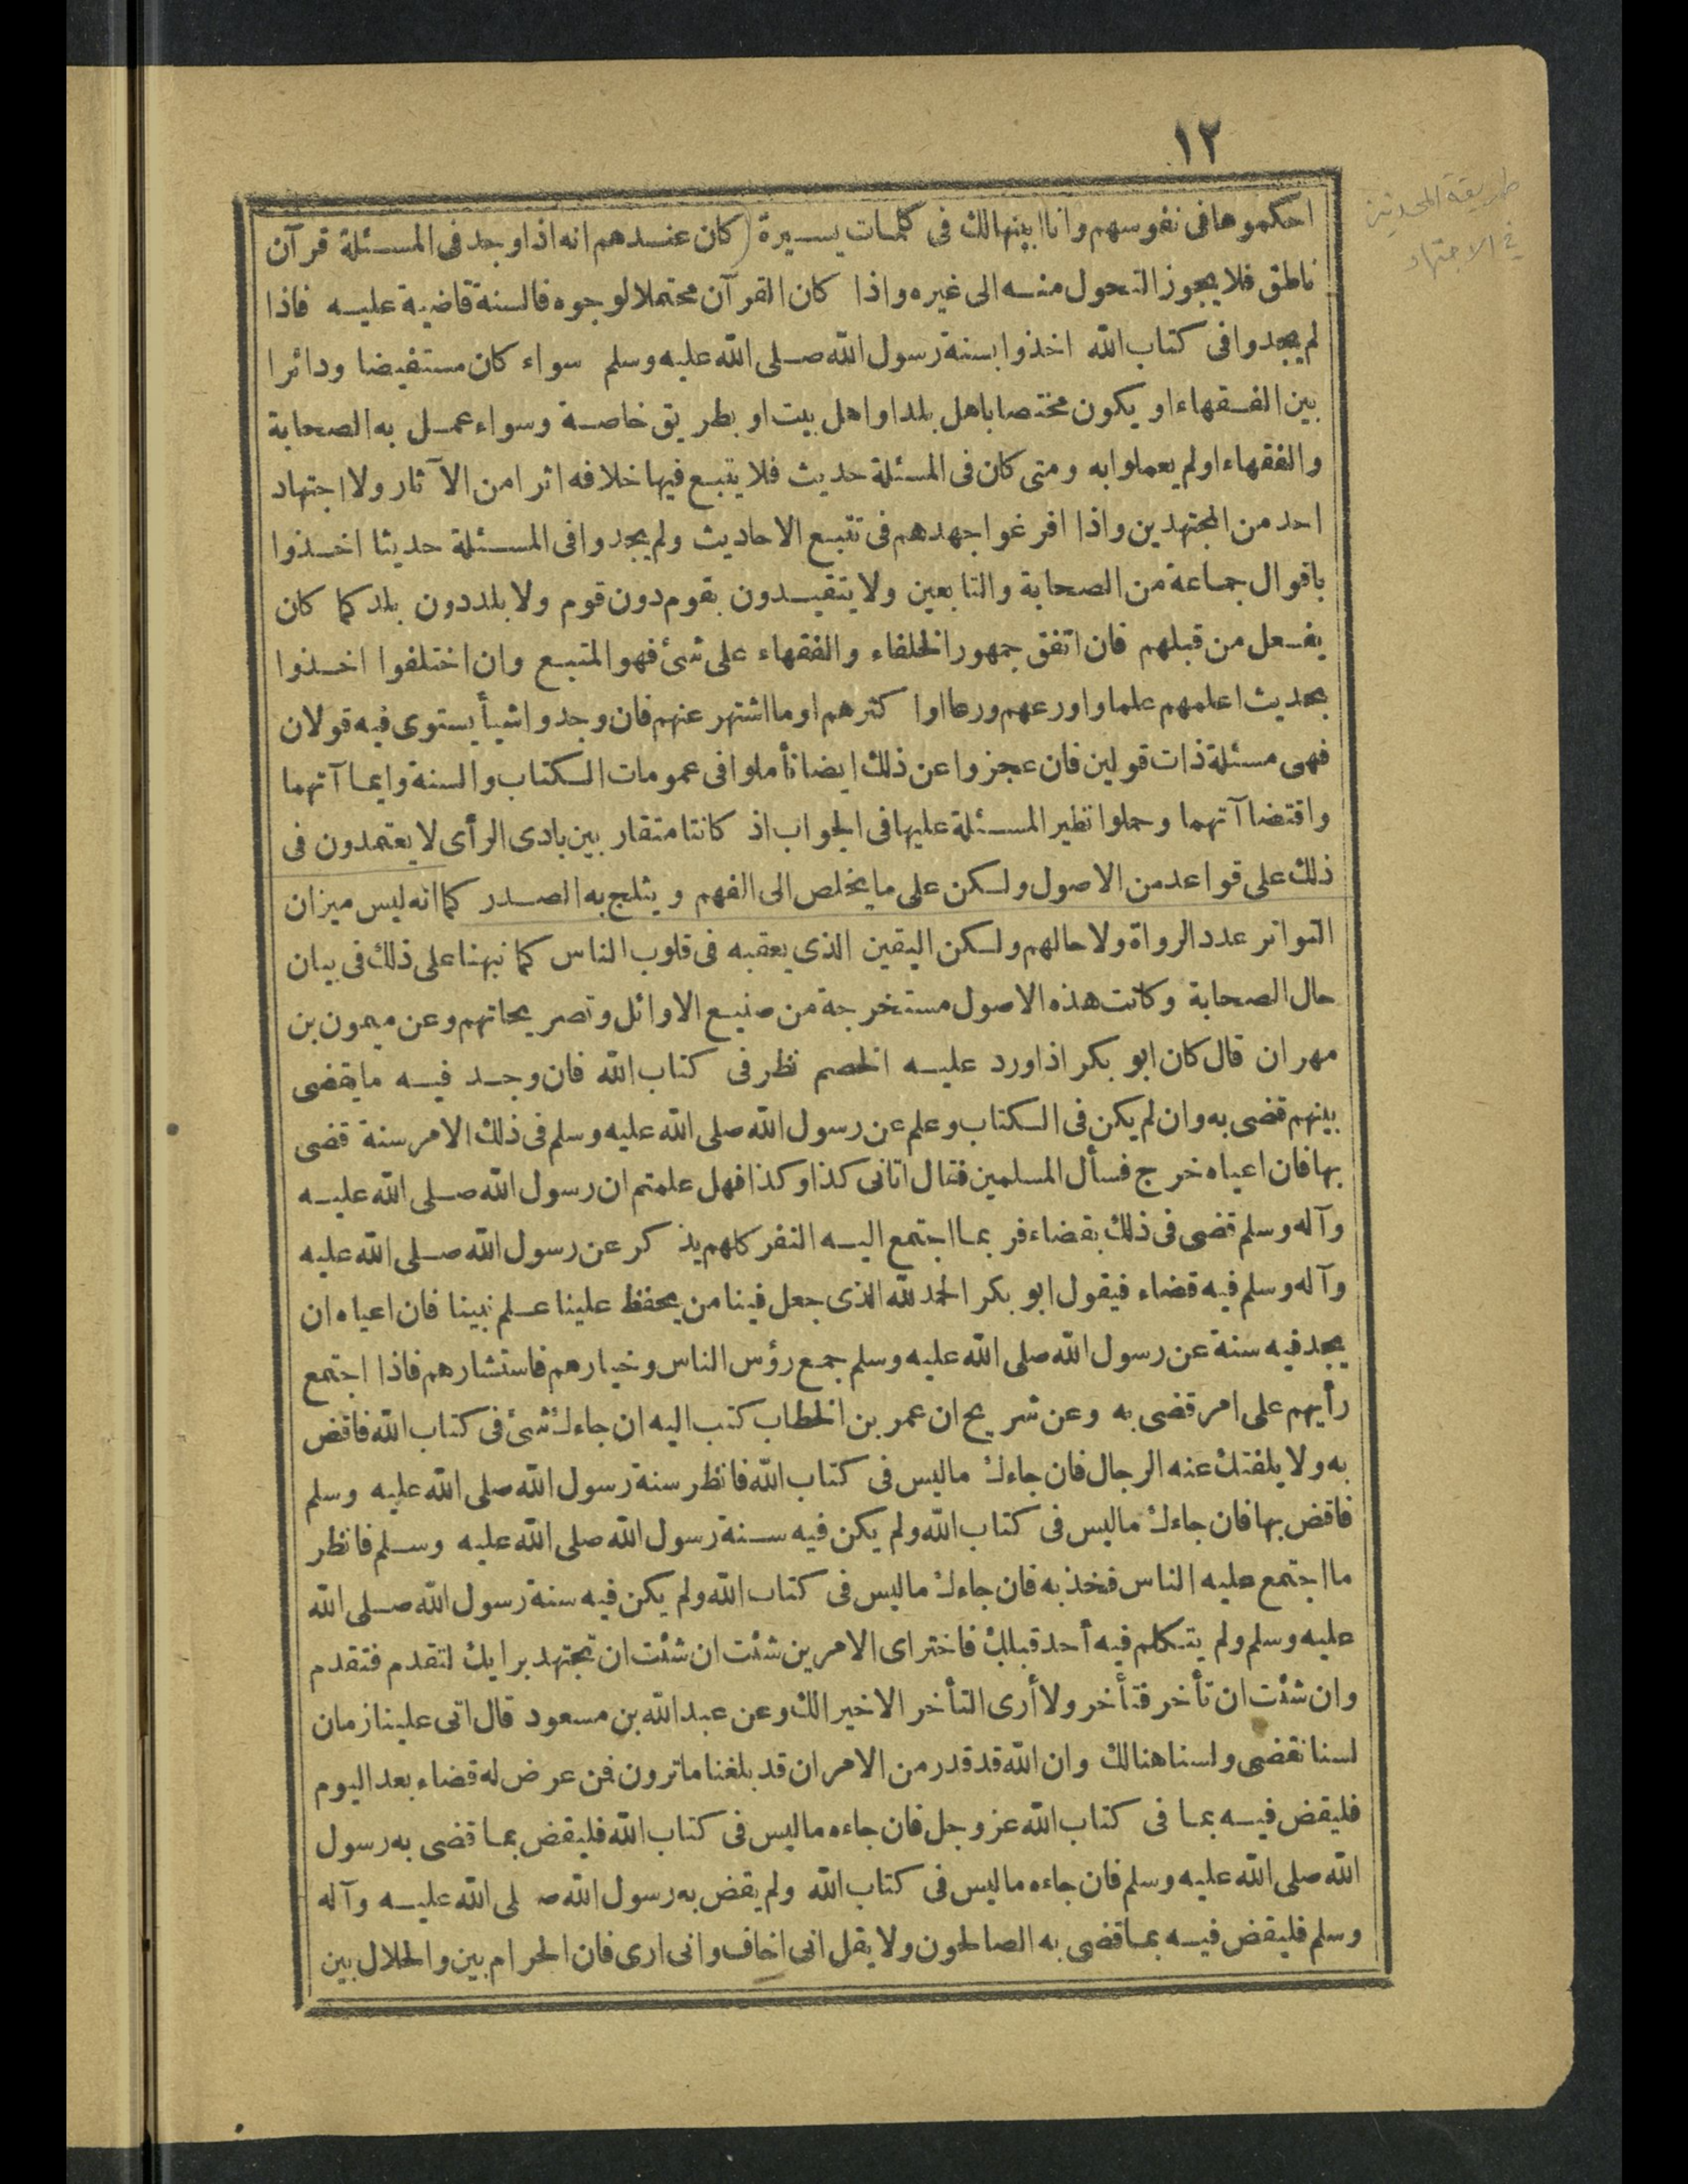 ١٢
طريقة المحدثين
في الاجتهاد
احكموها فى نفوسهم وانا ابينها لك فى كلمات يسيرة (كان عندهم انه اذا وجد فى المسئلة قرآن
ناطق فلا يجوز التحول منه الى غيره واذا كان القرآن محتملا لوجوه فالسنة قاضية عليه فاذا
لم يجدوا فى كتاب الله اخذوا بسنة رسول الله صلى الله عليه وسلم سواء كان مستفيضا ودائرا
بين الفقهاء او يكون مختصا باهل بلد او اهل بيت او بطريق خاصة وسواء عمل به الصحابة
والفقهاء او لم يعملوا به ومتى كان فى المسئلة حديث فلا يتبع فيها خلافه اثرا من الآثار ولا اجتهاد
احد من المجتهدين واذا افرغوا جهدهم فى تتبع الاحاديث ولم يجدوا فى المسئلة حديثا اخذوا
باقوال جماعة من الصحابة والتابعين ولا يتقيدون بقوم دون قوم ولا بلد دون بلد كما كان
يفعل من قبلهم فان اتفق جمهور الخلفاء والفقهاء على شئ فهو المتبع وان اختلفوا اخذوا
بحديث اعلمهم علما واورعهم ورعا او اكثرهم او ما اشتهر عنهم فان وجدوا شيأ يستوى فيه قولان
فهى مسئلة ذات قولين فان عجزوا عن ذلك ايضا تأملوا فى عمومات الكتاب والسنة وايما آتهما
واقتضا آتهما وحملوا نظير المسئلة عليها فى الجواب اذ كانتا متقاربين بادى الرأى لا يعتمدون فى
ذلك على قواعد من الاصول ولكن على ما يخلص الى الفهم ويثلج به الصدر كما انه ليس ميزان
التواتر عدد الرواة ولا حالهم ولكن اليقين الذى يعقبه فى قلوب الناس كما نبهنا على ذلك فى بيان
حال الصحابة وكانت هذه الاصول مستخرجة من صنيع الاوائل وتصريحاتهم وعن ميمون بن
مهران قال كان ابو بكر اذا ورد عليه الخصم نظر فى كتاب الله فان وجد فيه ما يقضى
بينهم قضى به وان لم يكن فى الكتاب وعلم عن رسول الله صلى الله عليه وسلم فى ذلك الامر سنة قضى
بها فان اعياه خرج فسأل المسلمين فقال اتانى كذا وكذا فهل علمتم ان رسول الله صلى الله عليه
وآله وسلم قضى فى ذلك بقضاء فربما اجتمع اليه النفر كلهم يذكر عن رسول الله صلى الله عليه
وآله وسلم فيه قضاء فيقول ابو بكر الحمد لله الذى جعل فينا من يحفظ علينا علم نبينا فان اعياه ان
يجد فيه سنة عن رسول الله صلى الله عليه وسلم جمع رؤس الناس وخيارهم فاستشارهم فاذا اجتمع
رأيهم على امر قضى به وعن شريح ان عمر بن الخطاب كتب اليه ان جاءك شئ فى كتاب الله فاقض
به ولا يلفتك عنه الرجال فان جاءك ما ليس فى كتاب الله فانظر سنة رسول الله صلى الله عليه وسلم
فاقض بها فان جاءك ما ليس فى كتاب الله ولم يكن فيه سنة رسول الله صلى الله عليه وسلم فانظر
ما اجتمع عليه الناس فخذ به فان جاءك ما ليس فى كتاب الله ولم يكن فيه سنة رسول الله صلى الله
عليه وسلم ولم يتكلم فيه أحد قبلك فاختر اى الامرين شئت ان شئت ان تجتهد برايك لتقدم فتقدم
وان شئت ان تأخر فتأخر ولا أرى التأخر الا خيرا لك وعن عبد الله بن مسعود قال اتى علينا زمان
لسنا نقضى ولسنا هنالك وان الله قد قدر من الامر ان قد بلغنا ما ترون فمن عرض له قضاء بعد اليوم
فليقض فيه بما فى كتاب الله عز وجل فان جاءه ما ليس فى كتاب الله فليقض بما قضى به رسول
الله صلى الله عليه وسلم فان جاءه ما ليس فى كتاب الله ولم يقض به رسول الله صلى الله عليه وآله
وسلم فليقض فيه بما قضى به الصالحون ولا يقل انى اخاف وانى ارى فان الحرام بين والحلال بين